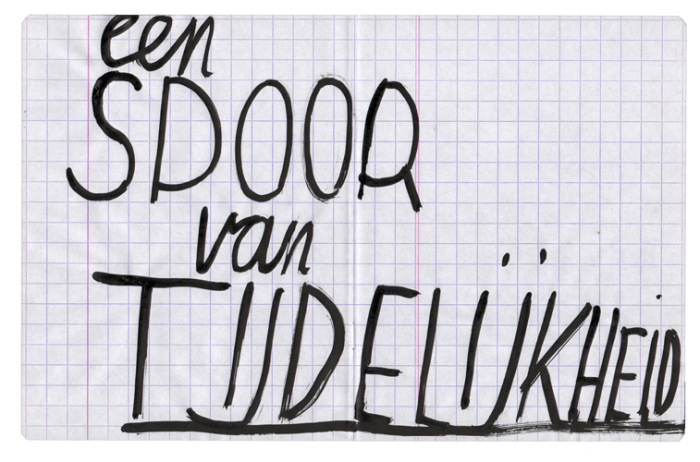 een
SPOOR
van
TIJDELIJKHEID